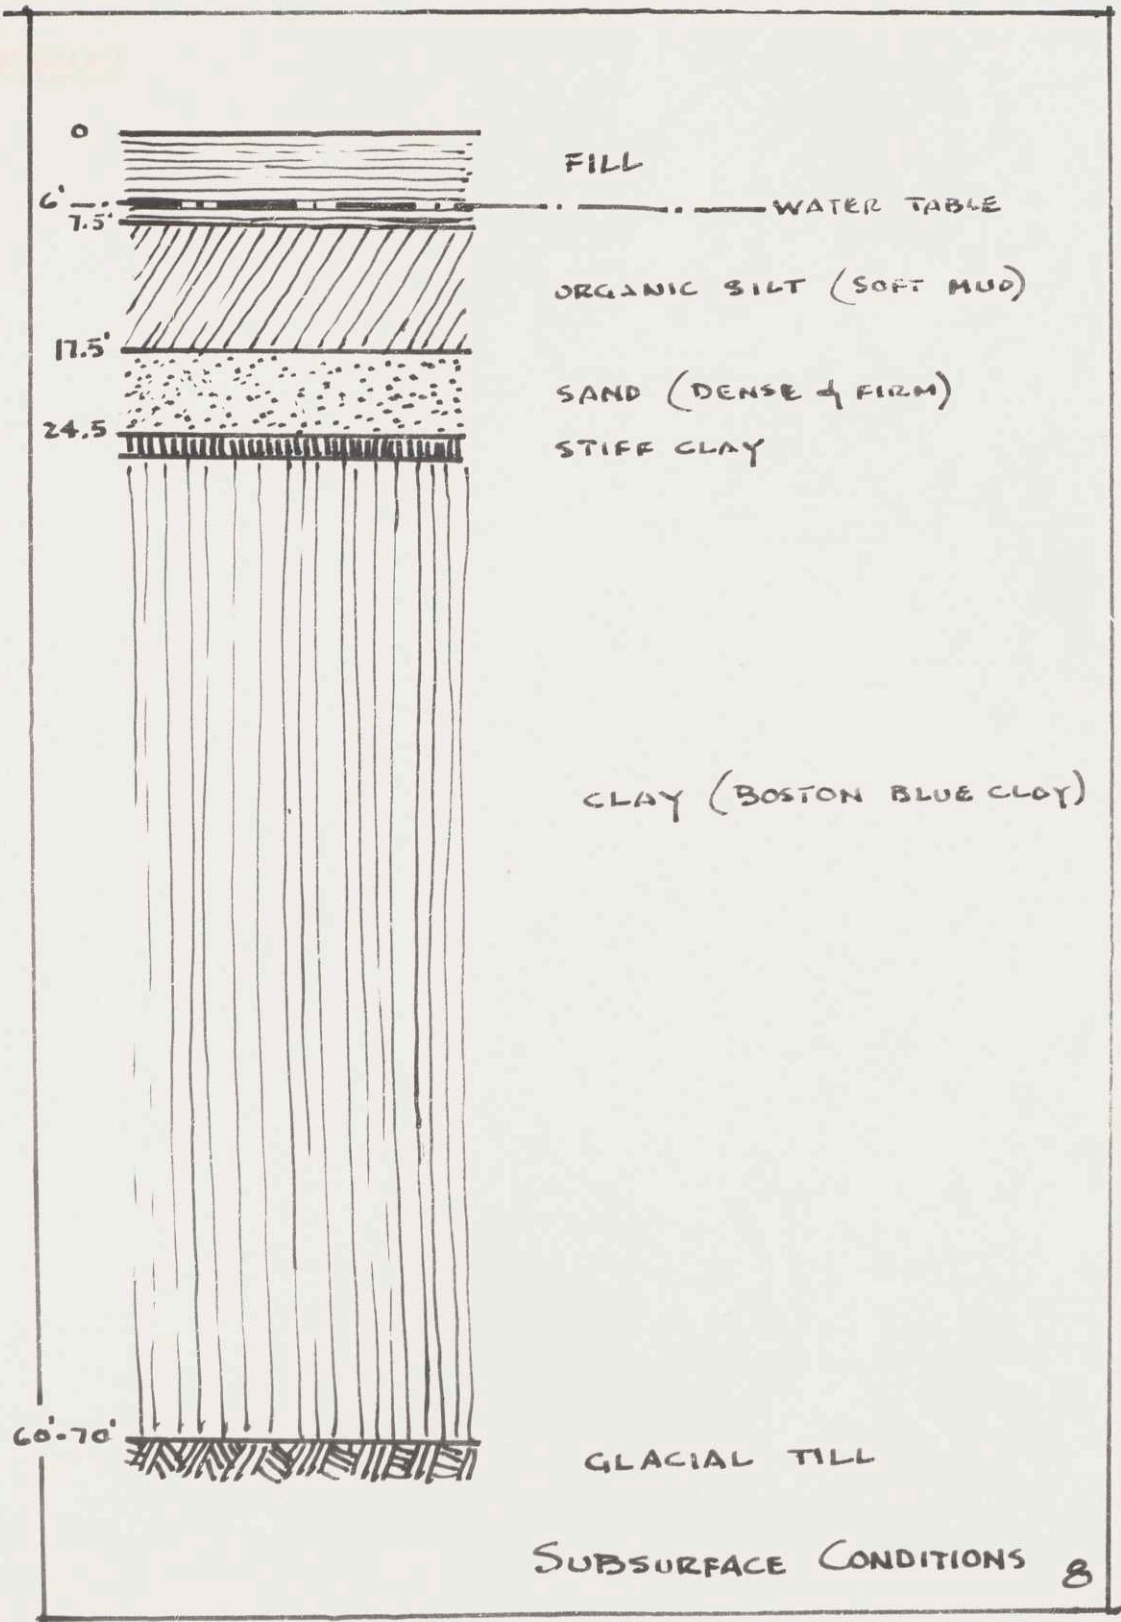 0
FILL
6'
WATER TABLE
7.5'
ORGANIC SILT (SOFT MUD)
17.5'
SAND (DENSE & FIRM)
24.5
STIFF CLAY
CLAY (BOSTON BLUE CLAY)
60'-70'
GLACIAL TILL
SUBSURFACE CONDITIONS 8